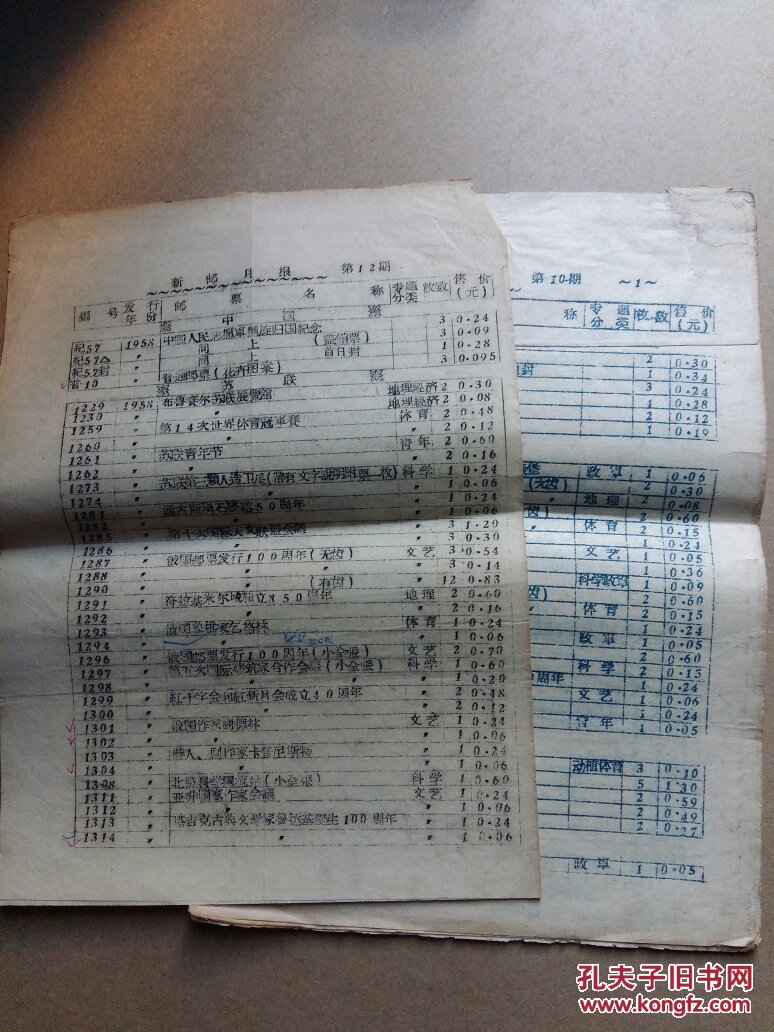 新邮月报 第12期
编号 发行年份 邮票名称 专题分类 枚数 售价(元)
中国
紀57 1958 中国人民志愿軍凱旋归国紀念 3 0.24
紀57 〃 同上 (盖销票) 3 0.09
紀57封 〃 同上 首日封 1 0.28
普10 〃 普通邮票(花卉图案) 3 0.095
苏联
1229 1958 布魯賽尔苏联展覽館 地理経济 2 0.30
1230 〃 地理経济 2 0.08
1259 〃 第14次世界体育冠軍賽 体育 2 0.48
〃 〃 2 0.12
1260 〃 苏联青年节 青年 2 0.60
1261 〃 〃 2 0.16
1262 〃 苏联第三顆人造卫星(帶有文字說明附票一枚) 科学 1 0.24
1273 〃 〃 1 0.06
1274 〃 50周年 1 0.24
1281 〃 〃 1 0.06
1285 〃 第十次国际天文联盟会議 〃 3 1.20
1286 〃 〃 3 0.30
1287 〃 俄国邮票发行100周年(无齿) 文艺 3 0.54
1288 〃 〃 3 0.14
1290 〃 〃 (有齿) 〃 12 0.83
1291 〃 符拉基米尔城建立850周年 地理 2 0.60
1292 〃 〃 2 0.16
1293 〃 俄国象棋家乞格林 体育 1 0.24
1294 〃 〃 1 0.06
1296 〃 俄国邮票发行100周年(小全張) 文艺 2 0.70
1297 〃 第五次国际建筑家合作会議(小全張) 科学 1 0.60
1298 〃 〃 1 0.20
1299 〃 紅十字会和紅新月会成立40周年 〃 2 0.48
1300 〃 〃 2 0.12
1301 〃 俄国作家 文艺 1 0.24
1302 〃 〃 1 0.06
1303 〃 詩人、劇作家卡 〃 1 0.24
1304 〃 〃 1 0.06
1308 〃 (小全張) 科学 1 0.60
1311 〃 亚非国家作家会議 文艺 1 0.24
1312 〃 〃 1 0.06
1313 〃 塔吉克古典文学家魯达基誕生1100周年 〃 1 0.24
1314 〃 〃 〃 1 0.06
第10期 ~1~
称 专題分类 枚数 售价(元)
2 0.30
封 1 0.34
3 0.24
1 0.28
2 0.12
1 0.19
政軍 1 0.06
(无齿) 〃 2 0.30
〃 地理 2 0.08
〃 8 0.60
〃 体育 2 0.15
〃 1 0.24
文艺 1 0.05
〃 1 0.36
科学政軍 1 0.09
〃 2 0.60
〃 体育 2 0.15
〃 1 0.24
政軍 1 0.05
〃 2 0.60
〃 科学 2 0.15
周年 〃 1 0.24
〃 文艺 1 0.06
〃 1 0.24
〃 青年 1 0.05
动植体育 3 0.10
5 1.30
2 0.59
2 0.49
2 0.27
政軍 1 0.05
孔夫子旧书网
www.kongfz.com